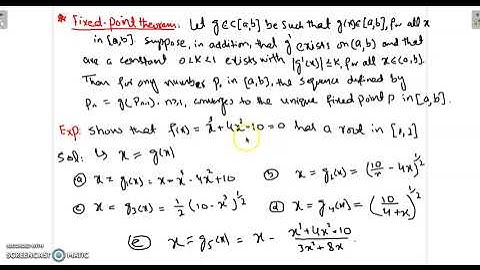 * Fixed-point theorem: Let g∈C[a,b] be such that g(x)∈[a,b], for all x
in [a,b]. Suppose, in addition, that g' exists on (a,b) and that
are a constant 0<K<1 exists with |g'(x)| ≤ K, for all x∈(a,b).
Then for any number P. in [a,b], the sequence defined by
Pn = g(Pn-1), n≥1, converges to the unique fixed point P in [a,b].
Exp: Show that f(x) = x³+4x²-10=0 has a root in [1,2]
Sol: ↳ x = g(x)
(a) x = g₁(x) = x - x³ - 4x² + 10
(b) x = g₂(x) = (10/x - 4x)^1/2
(c) x = g₃(x) = 1/2 (10-x³)^1/2
(d) x = g₄(x) = (10/(4+x))^1/2
(e) x = g₅(x) = x - (x³+4x²-10)/(3x²+8x).
RECORDED WITH
SCREENCAST-O-MATIC